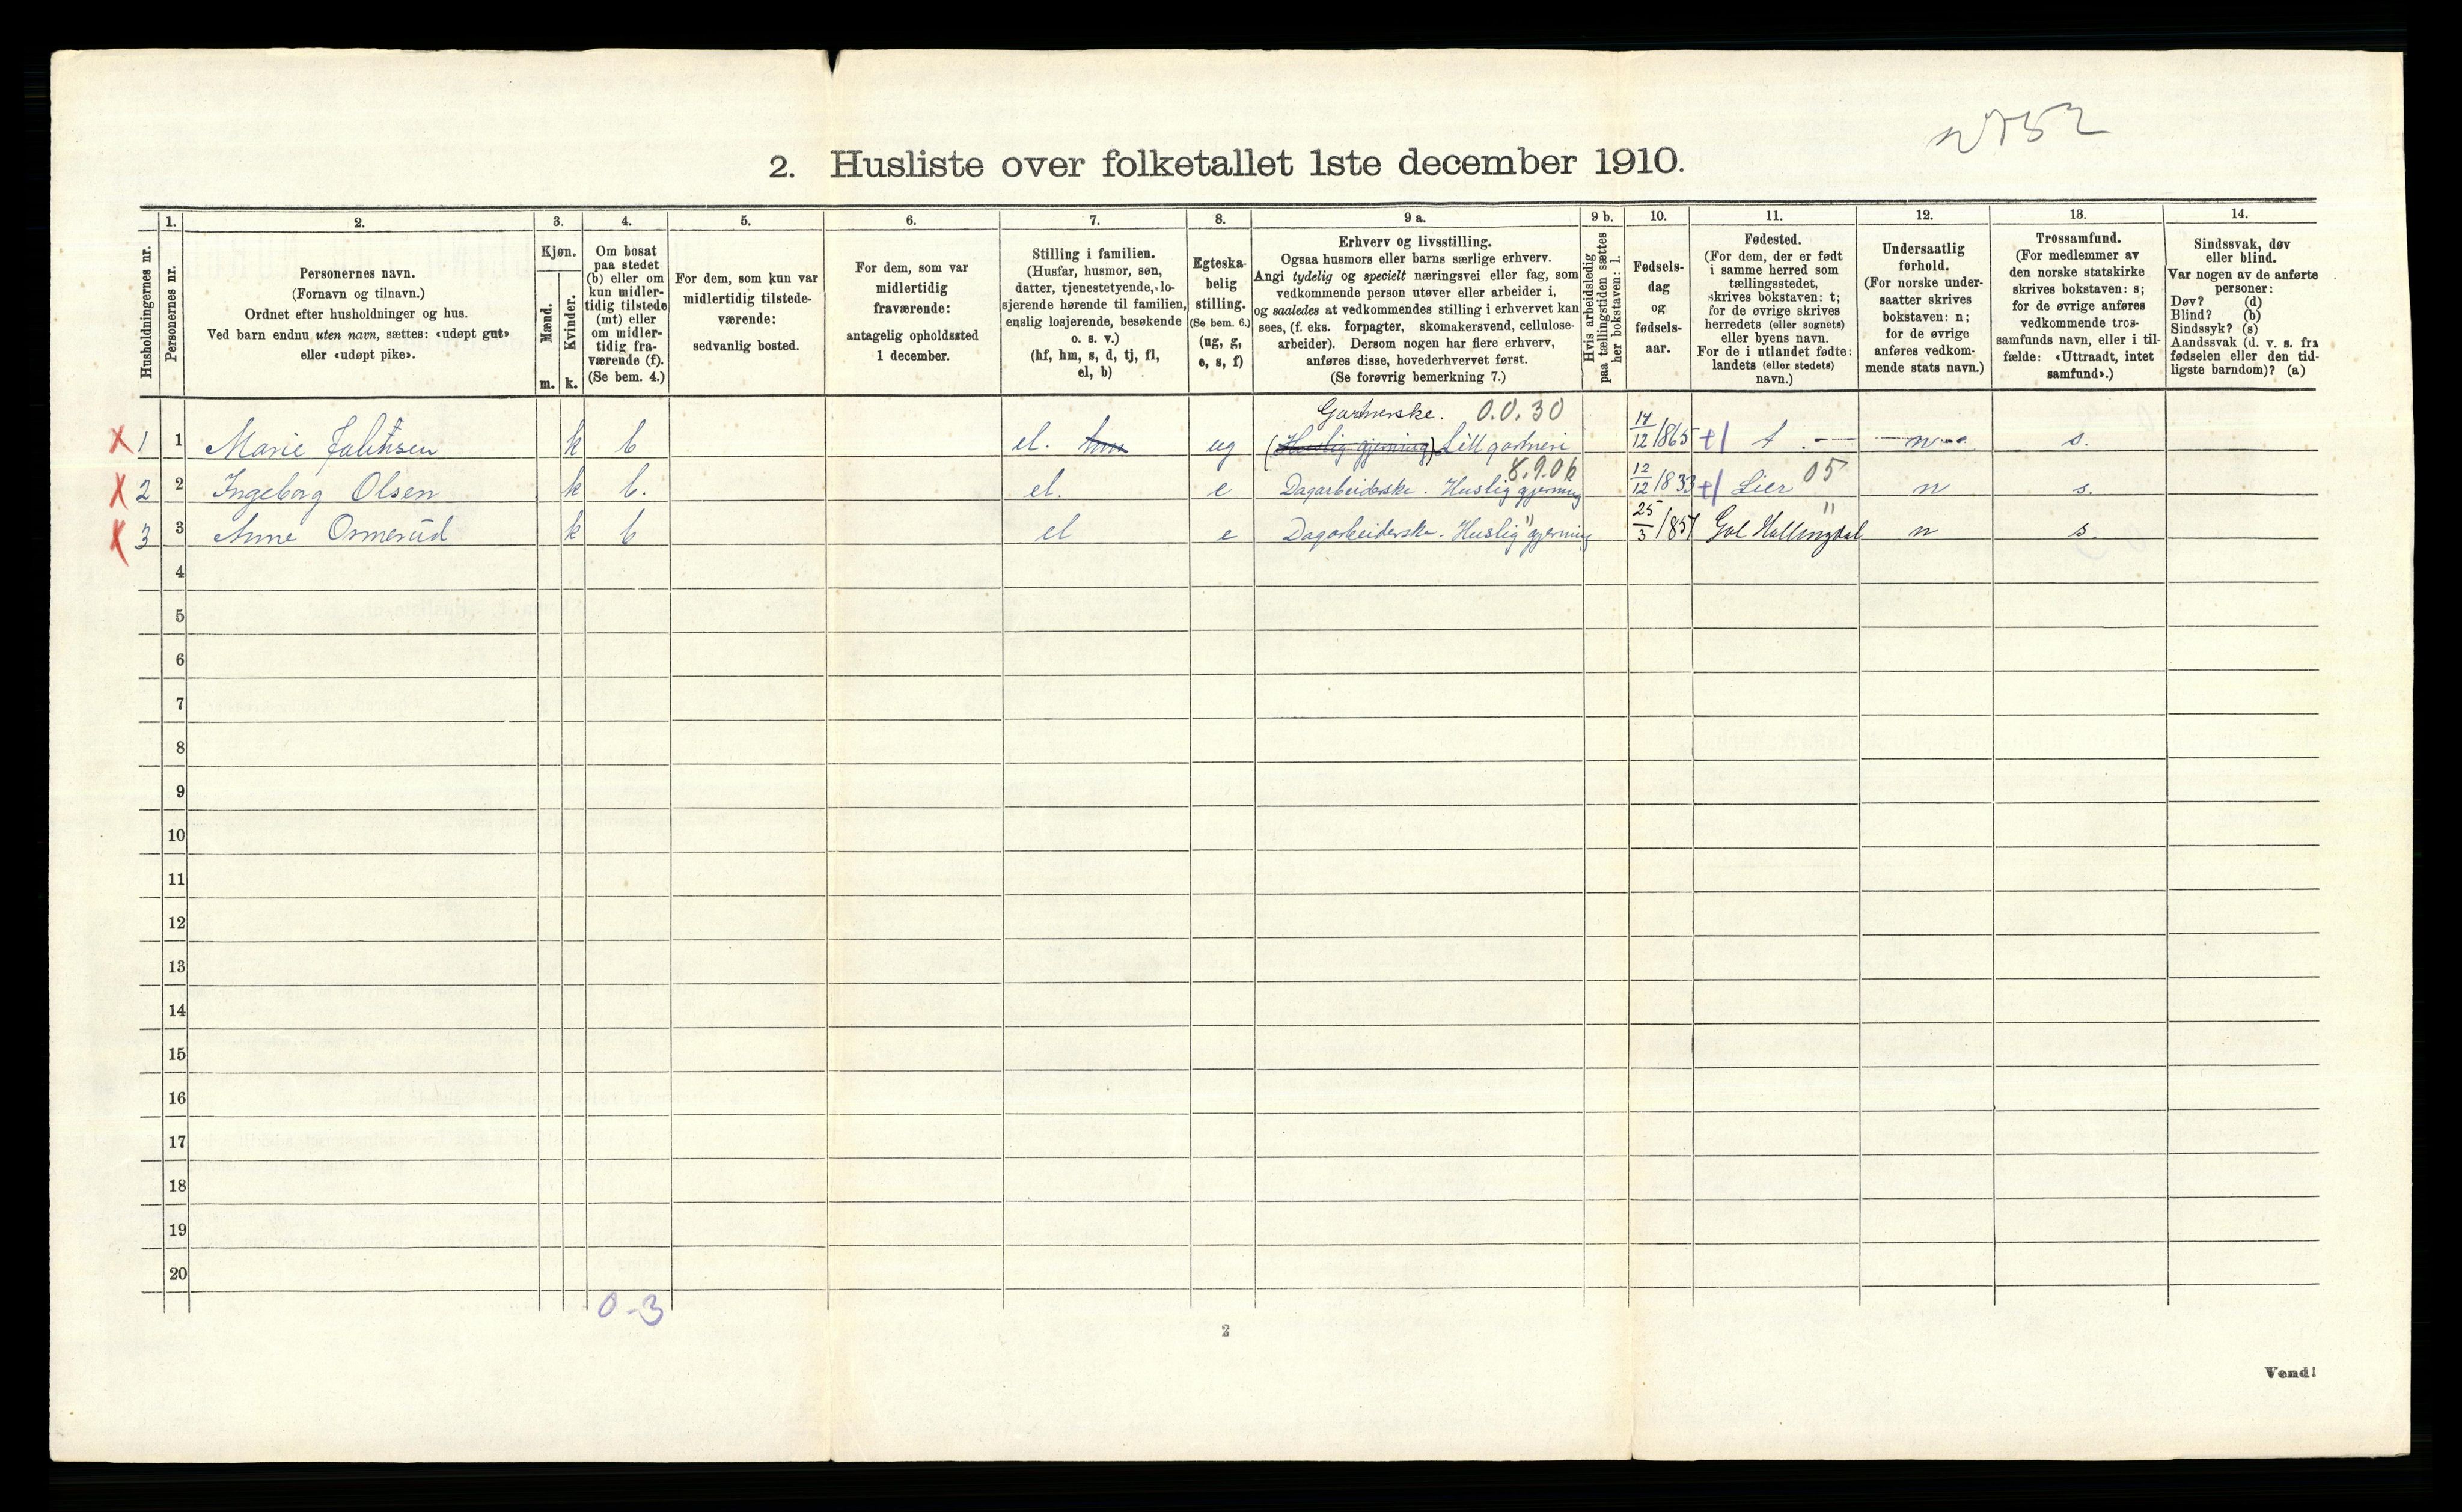 2. Husliste over folketallet 1ste december 1910.
Husholdningernes nr.
1. Personernes nr.
2. Personernes navn.
(Fornavn og tilnavn.)
Ordnet efter husholdninger og hus.
Ved barn endnu uten navn, sættes: «udøpt gut»
eller «udøpt pike».
3. Kjøn.
Mænd. m.
Kvinder. k.
4. Om bosat
paa stedet
(b) eller om
kun midler-
tidig tilstede
(mt) eller
om midler-
tidig fra-
værende (f).
(Se bem. 4.)
5. For dem, som kun var
midlertidig tilstede-
værende:
sedvanlig bosted.
6. For dem, som var
midlertidig
fraværende:
antagelig opholdssted
1 december.
7. Stilling i familien.
(Husfar, husmor, søn,
datter, tjenestetyende, lo-
sjerende hørende til familien,
enslig losjerende, besøkende
o. s. v.)
(hf, hm, s, d, tj, fl,
el, b)
8. Egteska-
belig
stilling.
(Se bem. 6.)
(ug, g,
e, s, f)
9 a. Erhverv og livsstilling.
Ogsaa husmors eller barns særlige erhverv.
Angi tydelig og specielt næringsvei eller fag, som
vedkommende person utøver eller arbeider i,
og saaledes at vedkommendes stilling i erhvervet kan
sees, (f. eks. forpagter, skomakersvend, cellulose-
arbeider). Dersom nogen har flere erhverv,
anføres disse, hovederhvervet først.
(Se forøvrig bemerkning 7.)
9 b. Hvis arbeidsledig
paa tællingstiden sættes
her bokstaven: l.
10. Fødsels-
dag
og
fødsels-
aar.
11. Fødested.
(For dem, der er født
i samme herred som
tællingsstedet,
skrives bokstaven: t;
for de øvrige skrives
herredets (eller sognets)
eller byens navn.
For de i utlandet fødte:
landets (eller stedets)
navn.)
12. Undersaatlig
forhold.
(For norske under-
saatter skrives
bokstaven: n;
for de øvrige
anføres vedkom-
mende stats navn.)
13. Trossamfund.
(For medlemmer av
den norske statskirke
skrives bokstaven: s;
for de øvrige anføres
vedkommende tros-
samfunds navn, eller i til-
fælde: «Uttraadt, intet
samfund».)
14. Sindssvak, døv
eller blind.
Var nogen av de anførte
personer:
Døv? (d)
Blind? (b)
Sindssyk? (s)
Aandssvak (d. v. s. fra
fødselen eller den tid-
ligste barndom)? (a)
Gartnerske. 0.0.30
X 1 1 Marie k b el. ug (Huslig gjerning) Litt gartneri 12/1865 t. n s.
8.9.06 05
X 2 2 Ingeborg Olsen k b. el. e Dagarbeiderske. Huslig gjerning 12/12 1833 Lier n s.
" "
X 3 3 Anne Ormerud k b el e Dagarbeiderske. Huslig gjerning 25/3 1857 Gol Hallingdal n s.
4
5
6
7
8
9
10
11
12
13
14
15
16
17
18
19
20
0-3
2
Vend!